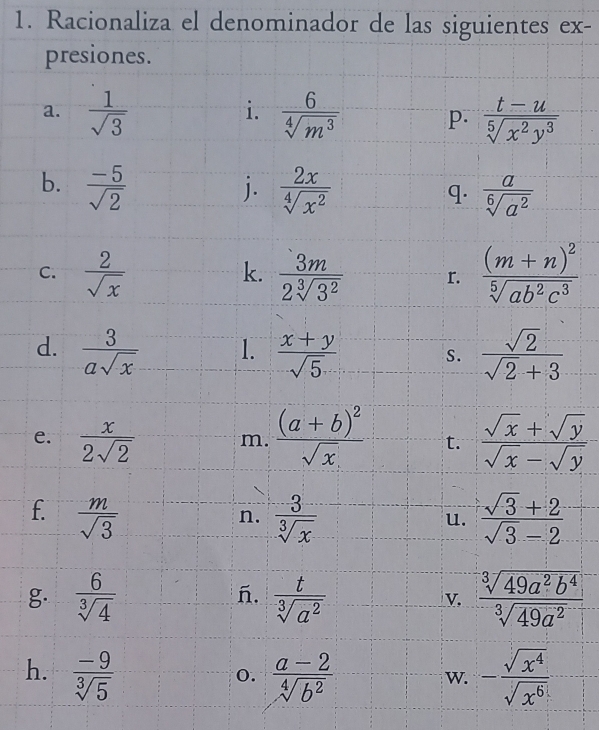 1. Racionaliza el denominador de las siguientes ex-
presiones.
a. $\frac{1}{\sqrt{3}}$
b. $\frac{-5}{\sqrt{2}}$
c. $\frac{2}{\sqrt{x}}$
d. $\frac{3}{a\sqrt{x}}$
e. $\frac{x}{2\sqrt{2}}$
f. $\frac{m}{\sqrt{3}}$
g. $\frac{6}{\sqrt[3]{4}}$
h. $\frac{-9}{\sqrt[3]{5}}$
i. $\frac{6}{\sqrt[4]{m^3}}$
j. $\frac{2x}{\sqrt[4]{x^2}}$
k. $\frac{3m}{2\sqrt[3]{3^2}}$
l. $\frac{x+y}{\sqrt{5}}$
m. $\frac{(a+b)^2}{\sqrt{x}}$
n. $\frac{3}{\sqrt[3]{x}}$
ñ. $\frac{t}{\sqrt[3]{a^2}}$
o. $\frac{a-2}{\sqrt[4]{b^2}}$
p. $\frac{t-u}{\sqrt[5]{x^2y^3}}$
q. $\frac{a}{\sqrt[6]{a^2}}$
r. $\frac{(m+n)^2}{\sqrt[5]{ab^2c^3}}$
s. $\frac{\sqrt{2}}{\sqrt{2}+3}$
t. $\frac{\sqrt{x}+\sqrt{y}}{\sqrt{x}-\sqrt{y}}$
u. $\frac{\sqrt{3}+2}{\sqrt{3}-2}$
v. $\frac{\sqrt[3]{49a^2b^4}}{\sqrt[3]{49a^2}}$
w. $-\frac{\sqrt{x^4}}{\sqrt{x^6}}$